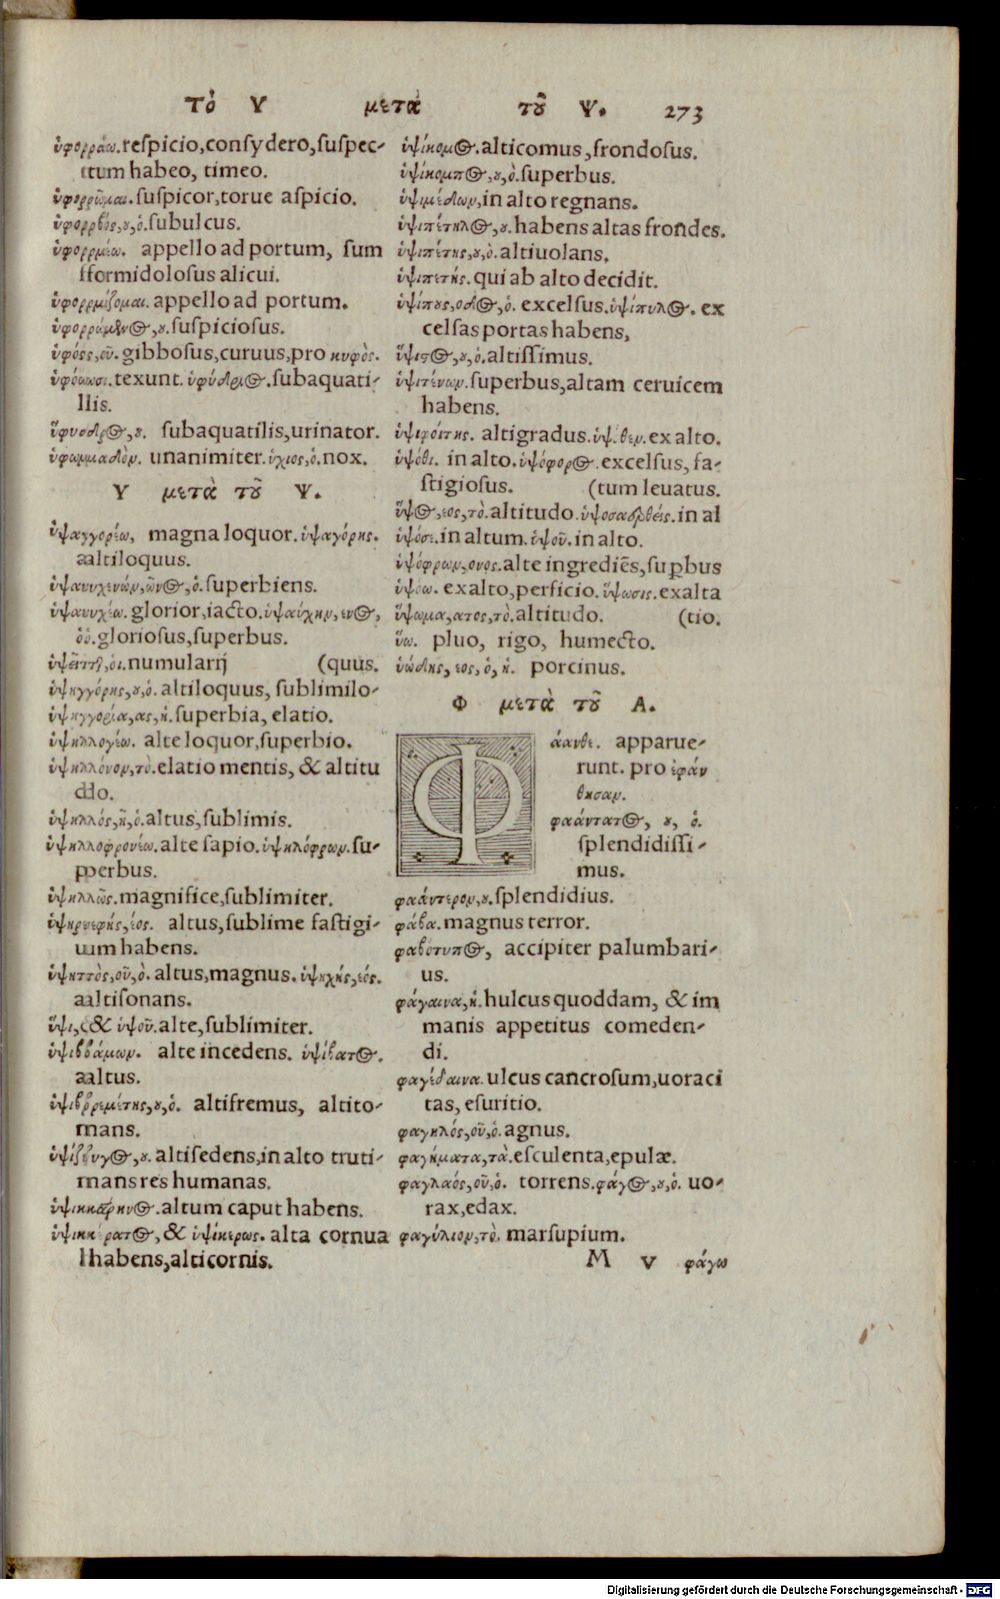 Τὸ Υ μετὰ τοῦ Ψ. 273
ὑφορράω. respicio, consydero, suspec-
tum habeo, timeo.
ὑφορρῶμαι. suspicor, torue aspicio.
ὑφορρβός, ου, ὁ. subulcus.
ὑφορρμέω. appello ad portum, sum
formidolosus alicui.
ὑφορρμίζομαι. appello ad portum.
suspiciosus.
gibbosus, curuus, pro κυφὸς.
ὑφόωσι. texunt. ὑφύδριος. subaquati-
lis.
ὕφυσδρος, ου. subaquatilis, urinator.
ὑφωμμαδὸν. unanimiter. ὕχιος, ὁ. nox.
Υ μετὰ τοῦ Ψ.
ὑψαγγορέω, magna loquor. ὑψαγόρης.
altiloquus.
ὑψαυυχενών, ῶνος, ὁ. superbiens.
ὑψαυυχέω. glorior, iacto. ὑψαύχην, ενος,
ὁ. gloriosus, superbus.
numularij (quus.
ὑψηγγόρης, ου, ὁ. altiloquus, sublimilo-
ὑψηγγορία, ας, ἡ. superbia, elatio.
ὑψηλλογέω. alte loquor, superbio.
ὑψηλλόνον, τὸ. elatio mentis, & altitu
do.
ὑψηλλός, ἢ, ὁ. altus, sublimis.
ὑψηλλοφρονέω. alte sapio. ὑψηλόφρων. su-
perbus.
ὑψηλλῶς. magnifice, sublimiter.
ὑψηρρεφής, έος. altus, sublime fastigi-
um habens.
ὑψηττὸς, οῦ, ὁ. altus, magnus. ὑψηχής, έος.
altisonans.
ὕψι, & ὑψοῦ. alte, sublimiter.
ὑψιββάμων. alte incedens. ὑψίβατος.
altus.
ὑψιββρεμέτης, ου, ὁ. altifremus, altito-
nans.
ὑψίζζυγος, ου. altisedens, in alto truti-
nans res humanas.
ὑψικκάρηνος. altum caput habens.
ὑψικκέρατος, & ὑψίκερως. alta cornua
habens, alticornis.
ὑψίκομος. alticomus, frondosus.
ὑψίκομπος, ου, ὁ. superbus.
ὑψιμέδων, in alto regnans.
ὑψιπέτηλος, ου. habens altas frondes.
ὑψιπέτης, ου, ὁ. altiuolans.
ὑψιπετής. qui ab alto decidit.
ὑψίπους, οδος, ὁ. excelsus. ὑψίπυλος. ex
celsas portas habens,
ὕψιστος, ου, ὁ. altissimus.
ὑψιτένων. superbus, altam ceruicem
habens.
ὑψιφοίτης. altigradus. ὑψόθεν. ex alto.
ὑψόθι. in alto. ὑψόφορος. excelsus, fa-
stigiosus. (tum leuatus.
ὕψος, εος, τὸ. altitudo. in al
ὑψόσε. in altum. ὑψοῦ. in alto.
ὑψόφρων, ονος. alte ingrediēs, suꝑbus
ὑψόω. exalto, perficio. ὕψωσις. exalta
ὕψωμα, ατος, τὸ. altitudo. (tio.
ὕω. pluo, rigo, humecto.
ὑώδης, εος, ὁ, ἡ. porcinus.
Φ μετὰ τοῦ Α.
Φάανθε. apparue-
runt. pro ἐφάν
θησαν.
φαάντατος, ου, ὁ.
splendidissi-
mus.
φαάντερον, ου. splendidius.
φάβα. magnus terror.
φαβοτυπος, accipiter palumbari-
us.
φάγαινα, ἡ. hulcus quoddam, & im
manis appetitus comeden-
di.
φαγέδαινα. ulcus cancrosum, uoraci
tas, esuritio.
φαγηλός, οῦ, ὁ. agnus.
φαγήματα, τὰ. esculenta, epulæ.
φαγλαός, οῦ, ὁ. torrens. φάγος, ου, ὁ. uo-
rax, edax.
φαγύλιον, τὸ. marsupium.
M v φάγω
Digitalisierung gefördert durch die Deutsche Forschungsgemeinschaft - DFG